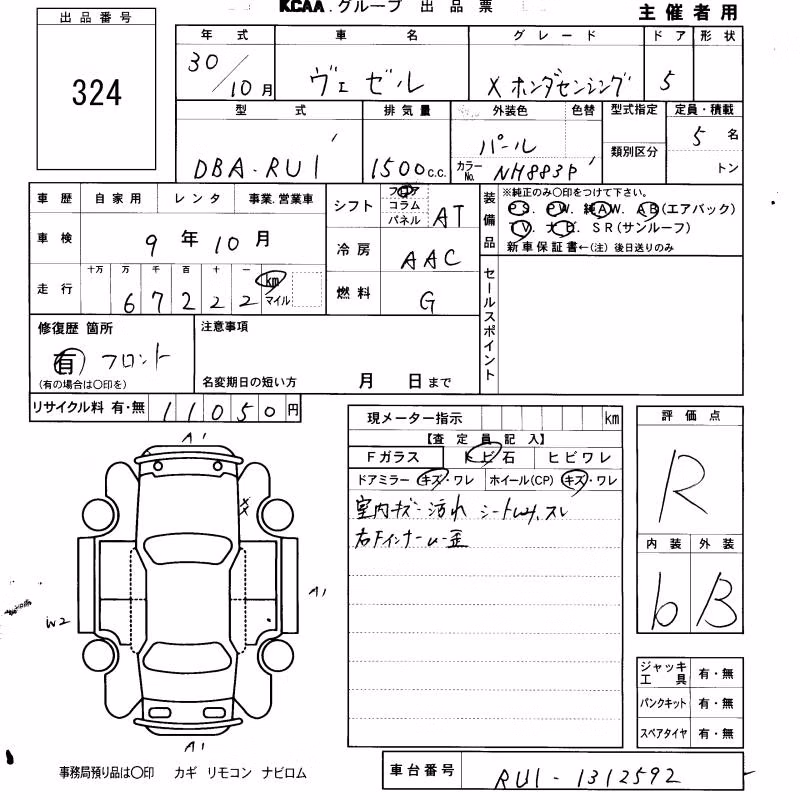 KCAA.グループ 出品票
主催者用
出品番号
324
年式 車名 グレード ドア 形状
30/10月 ヴェゼル X ホンダセンシング 5
型式 排気量 外装色 色替 型式指定 定員・積載
DBA-RU1 1500c.c. パール 類別区分 5名
カラーNo. NH883P トン
車歴 自家用 レンタ 事業.営業車
シフト フロア コラム パネル AT
装備品 ※純正のみ〇印をつけて下さい。
PS. PW. 純AW. AB(エアバック)
TV. ナビ. SR(サンルーフ)
新車保証書←(注)後日送りのみ
車検 9年10月
冷房 AAC
走行 十万 万 千 百 十 一 km マイル
67222
燃料 G
セールスポイント
修復歴 箇所
有 フロント
(有の場合は〇印を)
注意事項
名変期日の短い方 月 日まで
リサイクル料 有・無 11050円
現メーター指示 km
【査定員記入】
Fガラス トビ石 ヒビワレ
ドアミラー キズ・ワレ ホイール(CP) キズ・ワレ
室内キズ 汚れ シート スレ
右Fインナー 歪
評価点
R
内装 外装
b B
A1
XX
A1
W2
A1
ジャッキ工具 有・無
パンクキット 有・無
スペアタイヤ 有・無
事務局預り品は〇印 カギ リモコン ナビロム
車台番号 RU1-1312592